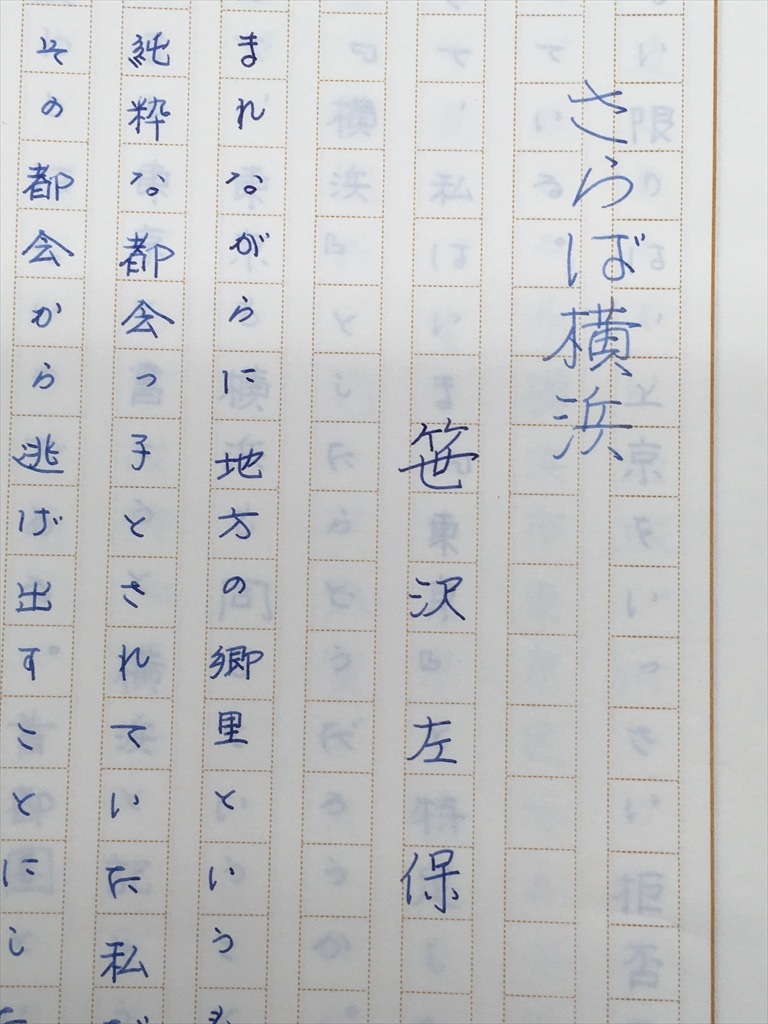 さらば横浜
笹沢左保
まれながらに地方の郷里というも
純粋な都会っ子とされていた私が
その都会から逃げ出すことにした